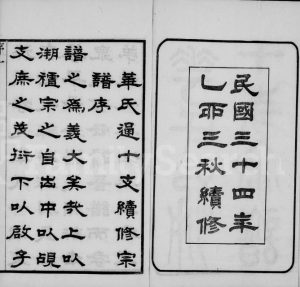 民國三十四年
乙酉三秋續修
華氏通十支續修宗
譜序
譜之為義大矣哉上以
溯禮宗之自古中以覘
支庶之茂衍下以啟子